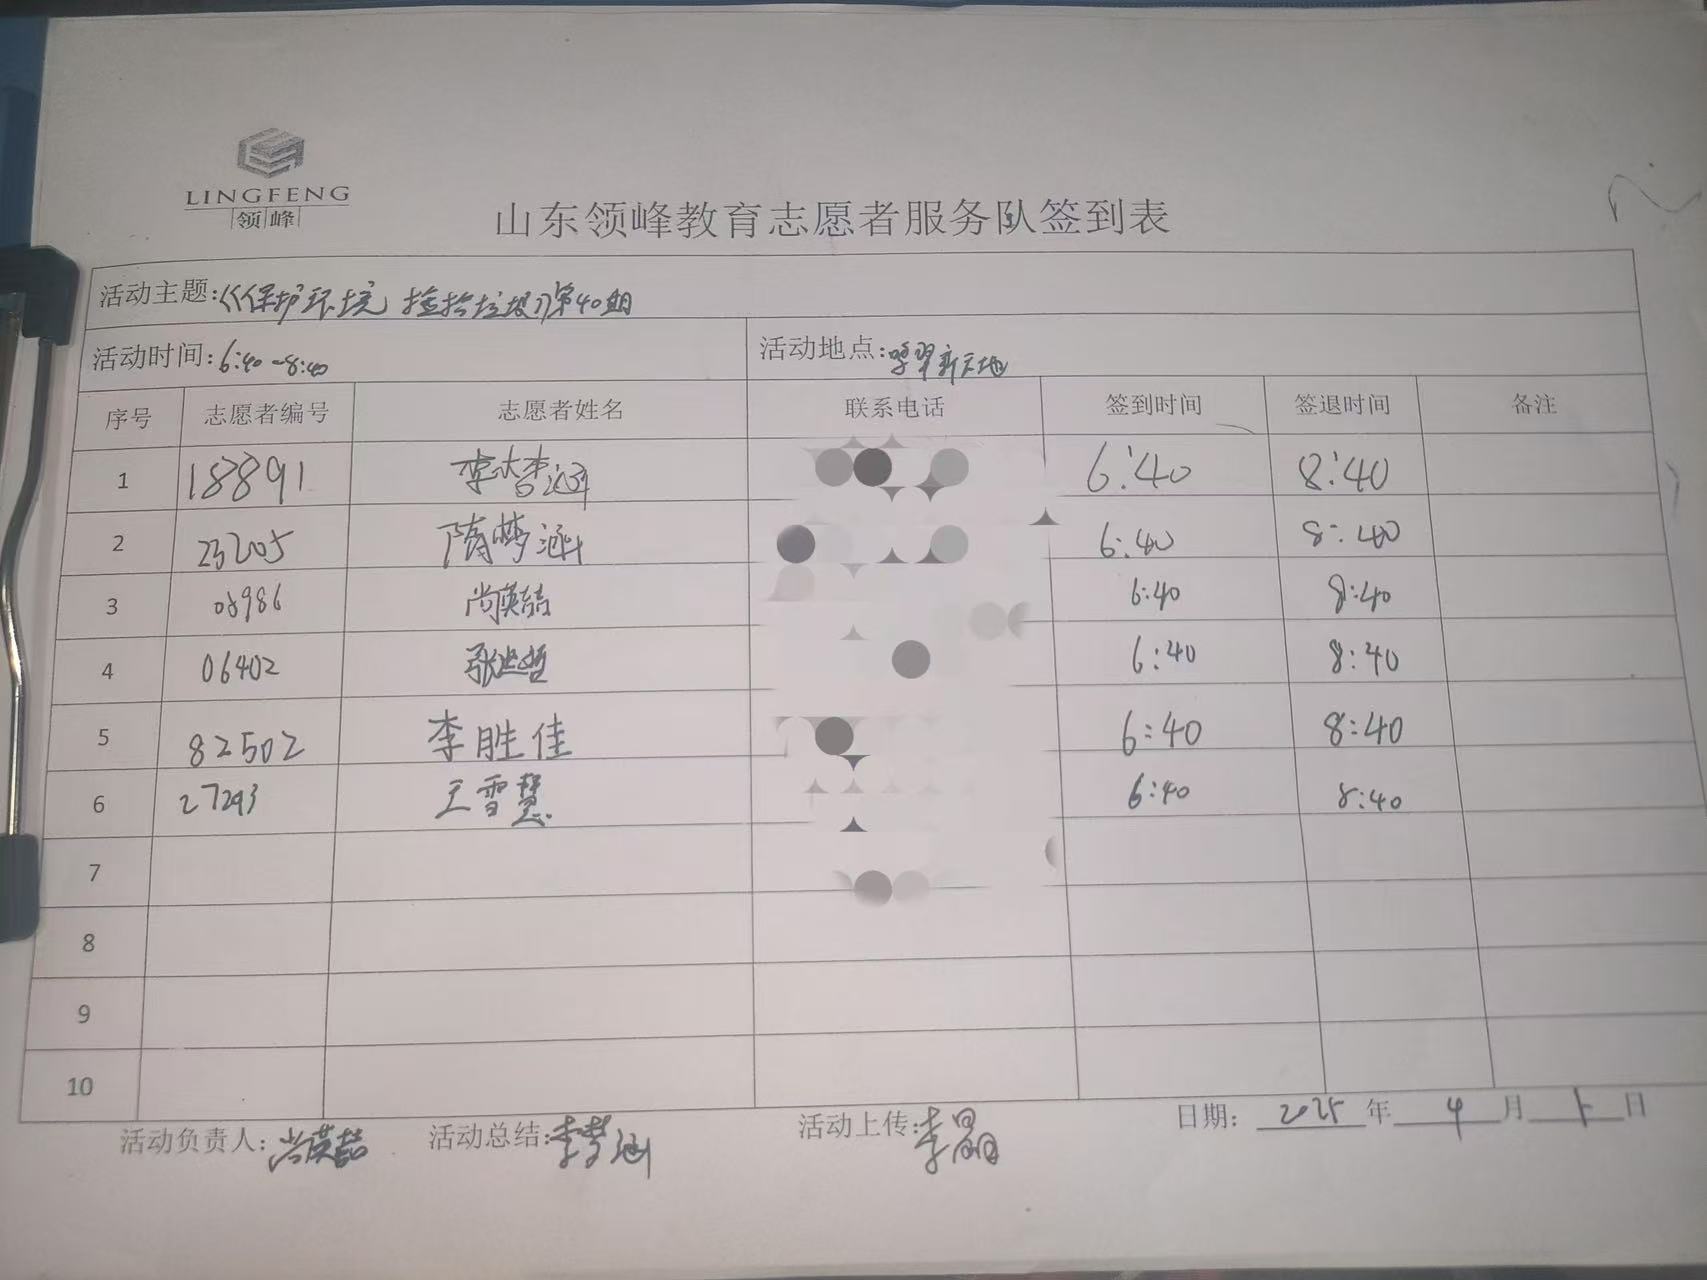 LINGFENG
领峰
山东领峰教育志愿者服务队签到表
活动主题:《保护环境 捡拾垃圾》第40期
活动时间:6:40-8:40 活动地点:翠新天地
序号 志愿者编号 志愿者姓名 联系电话 签到时间 签退时间 备注
1 18891 李 涵 6:40 8:40
2 23205 隋梦涵 6:40 8:40
3 08986 尚英喆 6:40 8:40
4 06402 张 哲 6:40 8:40
5 82502 李胜佳 6:40 8:40
6 27293 王雪慧 6:40 8:40
7
8
9
10
活动负责人:尚英喆 活动总结:李梦涵 活动上传:李晶 日期: 2025年 4 月 日